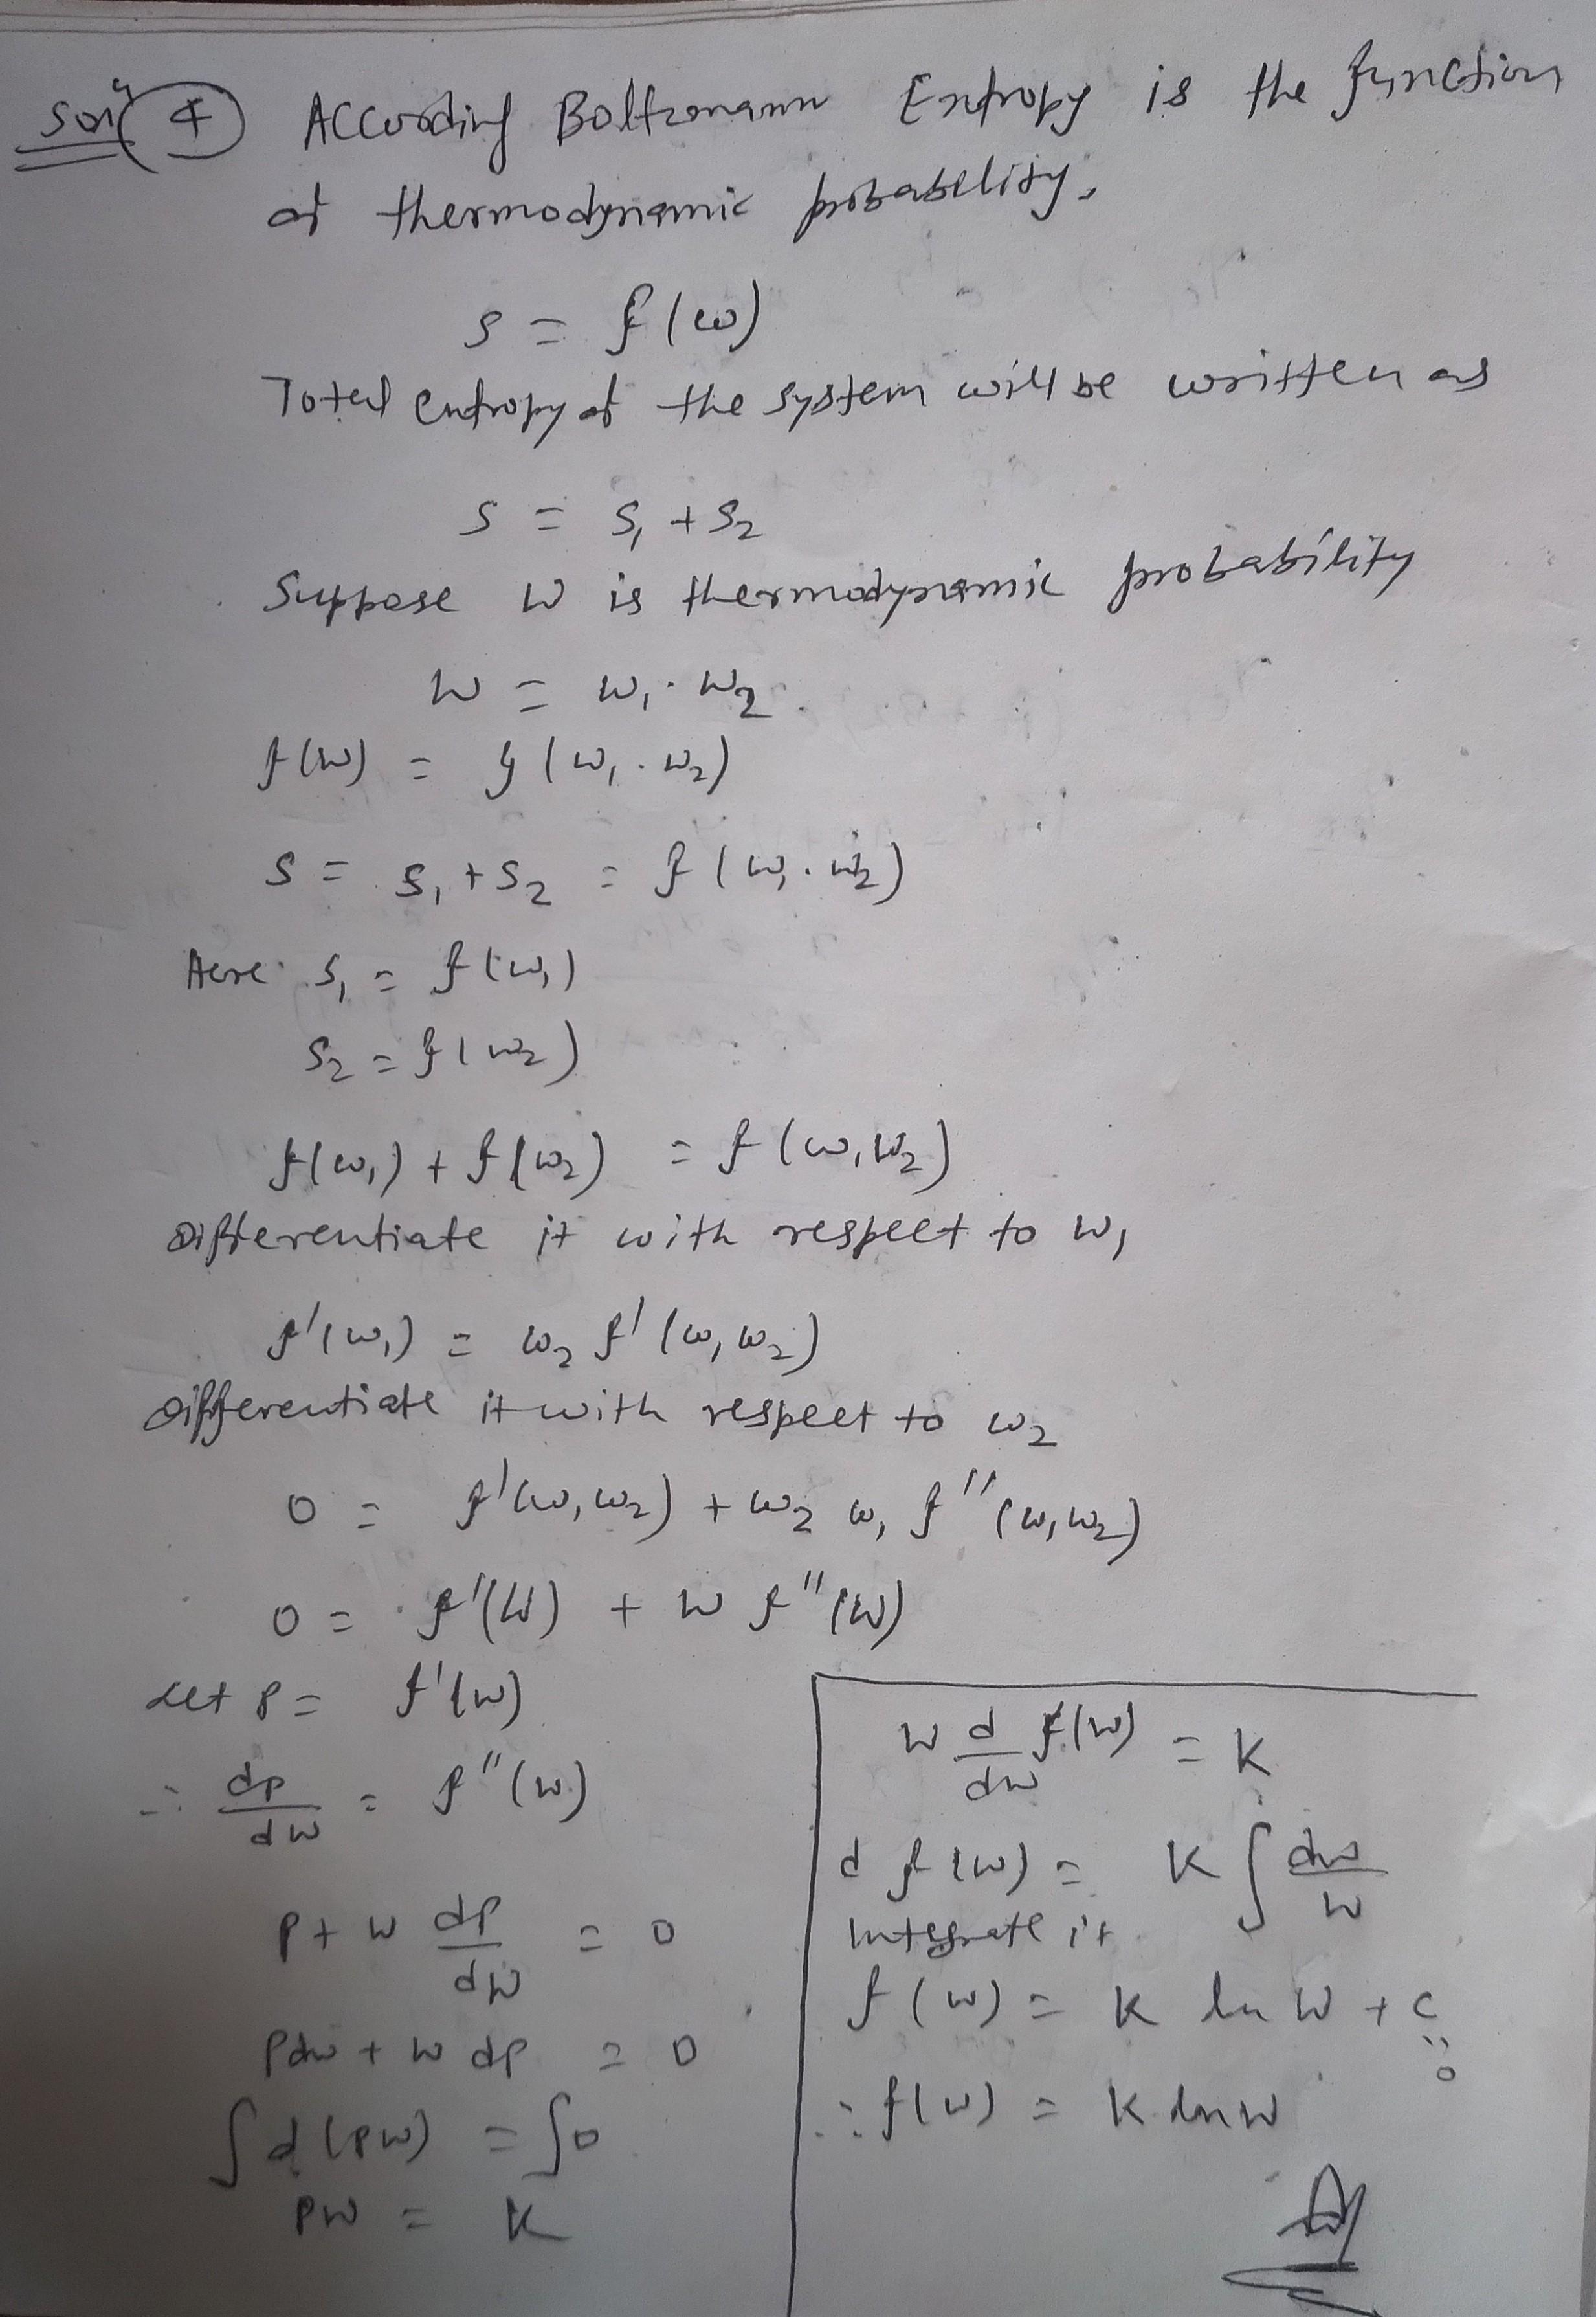 Solⁿ 4 According Boltzmann Entropy is the function
of thermodynamic probability.
S = f(w)
Total entropy of the system will be written as
S = S₁ + S₂
Suppose W is thermodynamic probability
W = W₁ · W₂
f(W) = f(W₁ · W₂)
S = S₁ + S₂ = f(W₁ · W₂)
Here S₁ = f(W₁)
S₂ = f(W₂)
f(W₁) + f(W₂) = f(W₁W₂)
Differentiate it with respect to W₁
f'(W₁) = W₂ f'(W₁W₂)
Differentiate it with respect to W₂
0 = f'(W₁W₂) + W₂ W₁ f''(W₁W₂)
0 = f'(W) + W f''(W)
Let P = f'(W)
∴ dP/dW = f''(W)
P + W dP/dW = 0
PdW + W dP = 0
∫d(PW) = ∫0
PW = K
W d/dW f(W) = K
d f(W) = K ∫ dW/W
Integrate it
f(W) = K ln W + C
" 0
∴ f(W) = K ln W